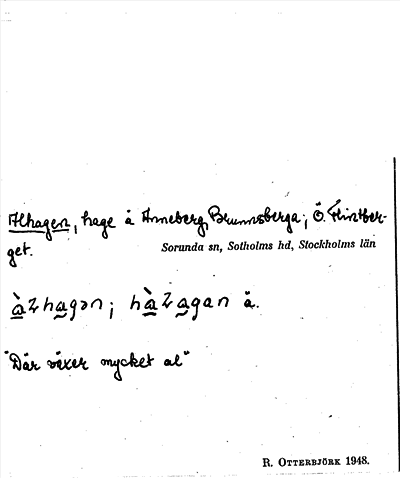 Alhagen, hage å Anneberg, Brunnsberga; Ö. Flintber-
get.
Sorunda sn, Sotholms hd, Stockholms län
"Där växer mycket al"
R. OTTERBJÖRK 1948.